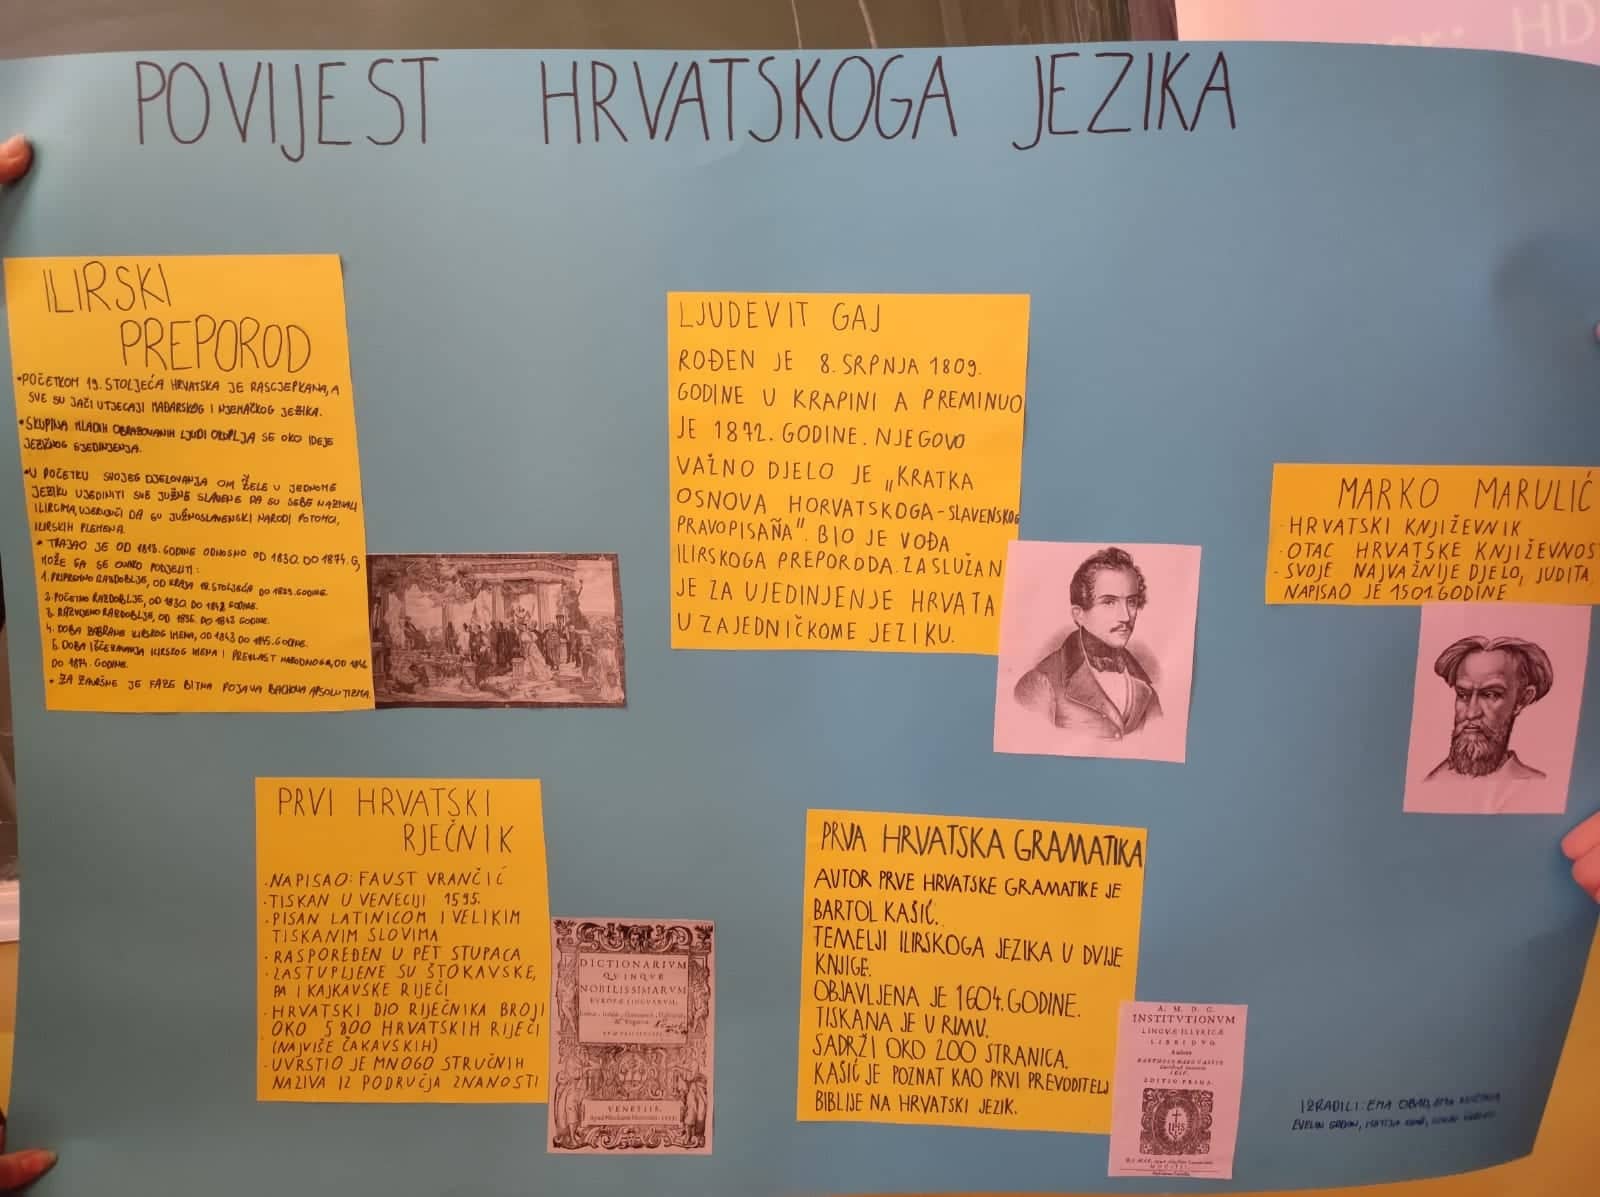 HD
POVIJEST HRVATSKOGA JEZIKA
ILIRSKI
PREPOROD
•POČETKOM 19. STOLJEĆA HRVATSKA JE RASCJEPKANA, A
SVE SU JAČI UTJECAJI MAĐARSKOG I NJEMAČKOG JEZIKA.
•SKUPINA MLADIH OBRAZOVANIH LJUDI OKUPLJA SE OKO IDEJE
JEZIČNOG SJEDINJENJA.
•U POČETKU SVOJEG DJELOVANJA ONI ŽELE U JEDNOME
JEZIKU UJEDINITI SVE JUŽNE SLAVENE DA SU SEBE NAZIVALI
ILIRCIMA, UJERUJUĆI DA SU JUŽNOSLAVENSKI NARODI POTOMCI,
ILIRSKIH PLEMENA.
• TRAJAO JE OD GODINE ODNOSNO OD 1830. DO 1874. G,
MOŽE GA SE OVAKO PODIJELITI:
1. PRIPREMNO RAZDOBLJE, OD KRAJA 18. STOLJEĆA DO 1829. GODINE.
2. POČETNO RAZDOBLJE, OD 1830. DO GODINE.
3. RAZVIJENO RAZDOBLJE, OD DO 1843 GODINE.
4. DOBA ZABRANE ILIRSKOG IMENA, OD 1843 DO 1845. GODINE.
5. DOBA IŠČEZAVANJA ILIRSKOG IMENA I PREVLAST NARODNOGA, OD
DO 1874. GODINE.
• ZA ZAVRŠNE JE FAZE BITNA POJAVA BACHOVA APSOLUTIZMA.
LJUDEVIT GAJ
ROĐEN JE 8. SRPNJA 1809.
GODINE U KRAPINI A PREMINUO
JE 1872. GODINE. NJEGOVO
VAŽNO DJELO JE „KRATKA
OSNOVA HORVATSKOGA-SLAVENSKOG
PRAVOPISAÑA". BIO JE VOĐA
ILIRSKOGA PREPORODA. ZASLUŽAN
JE ZA UJEDINJENJE HRVATA
U ZAJEDNIČKOME JEZIKU.
MARKO MARULIĆ
· HRVATSKI KNJIŽEVNIK
· OTAC HRVATSKE KNJIŽEVNOS
· SVOJE NAJVAŽNIJE DJELO, JUDITA,
NAPISAO JE 1501. GODINE
PRVI HRVATSKI
RJEČNIK
· NAPISAO: FAUST VRANČIĆ
· TISKAN U VENECIJI 1595.
· PISAN LATINICOM I VELIKIM
TISKANIM SLOVIMA
· RASPOREĐEN U PET STUPACA
· ZASTUPLJENE SU ŠTOKAVSKE,
PA I KAJKAVSKE RIJEČI
· HRVATSKI DIO RIJEČNIKA BROJI
OKO 5 800 HRVATSKIH RIJEČI
(NAJVIŠE ČAKAVSKIH)
· UVRSTIO JE MNOGO STRUČNIH
NAZIVA IZ PODRUČJA ZNANOSTI
DICTIONARIVM
QVINQVE
NOBILISSIMARVM
EVROPÆ LINGVARVM,
VENETIIS,
PRVA HRVATSKA GRAMATIKA
AUTOR PRVE HRVATSKE GRAMATIKE JE
BARTOL KAŠIĆ.
TEMELJI ILIRSKOGA JEZIKA U DVIJE
KNJIGE.
OBJAVLJENA JE 1604. GODINE.
TISKANA JE U RIMU.
SADRŽI OKO 200 STRANICA.
KAŠIĆ JE POZNAT KAO PRVI PREVODITELJ
BIBLIJE NA HRVATSKI JEZIK.
A. M. D. G.
INSTITVTIONVM
LINGVÆ ILLYRICÆ
LIBRI DVO.
EDITIO PRIMA.
IHS
IZRADILI: EMA OBAD,
EVELIN